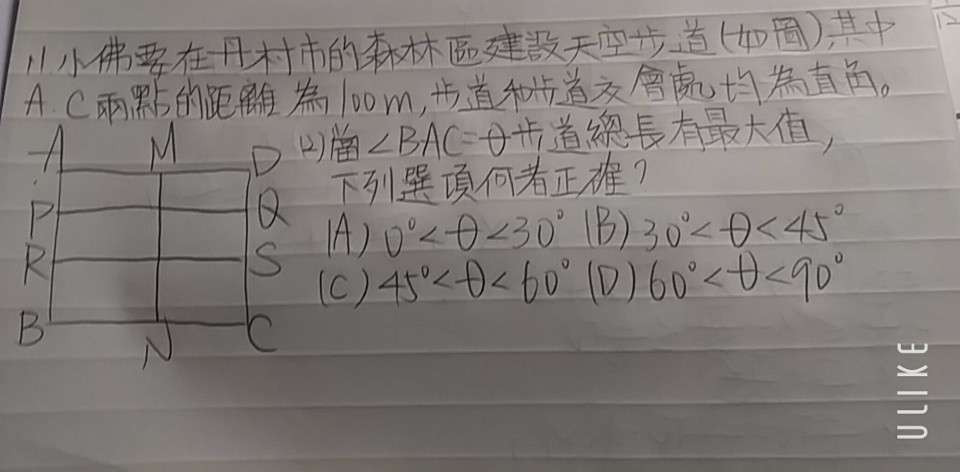 11小佛要在丹村市的森林區建設天空步道(如圖),其中
A.C兩點的距離為100m,步道和步道交會處均為直角。
(2)當∠BAC=θ步道總長有最大值,
下列選項何者正確?
(A)0°<θ<30° (B)30°<θ<45°
(C)45°<θ<60° (D)60°<θ<90°
A M D
P Q
R S
B N C
ULIKE